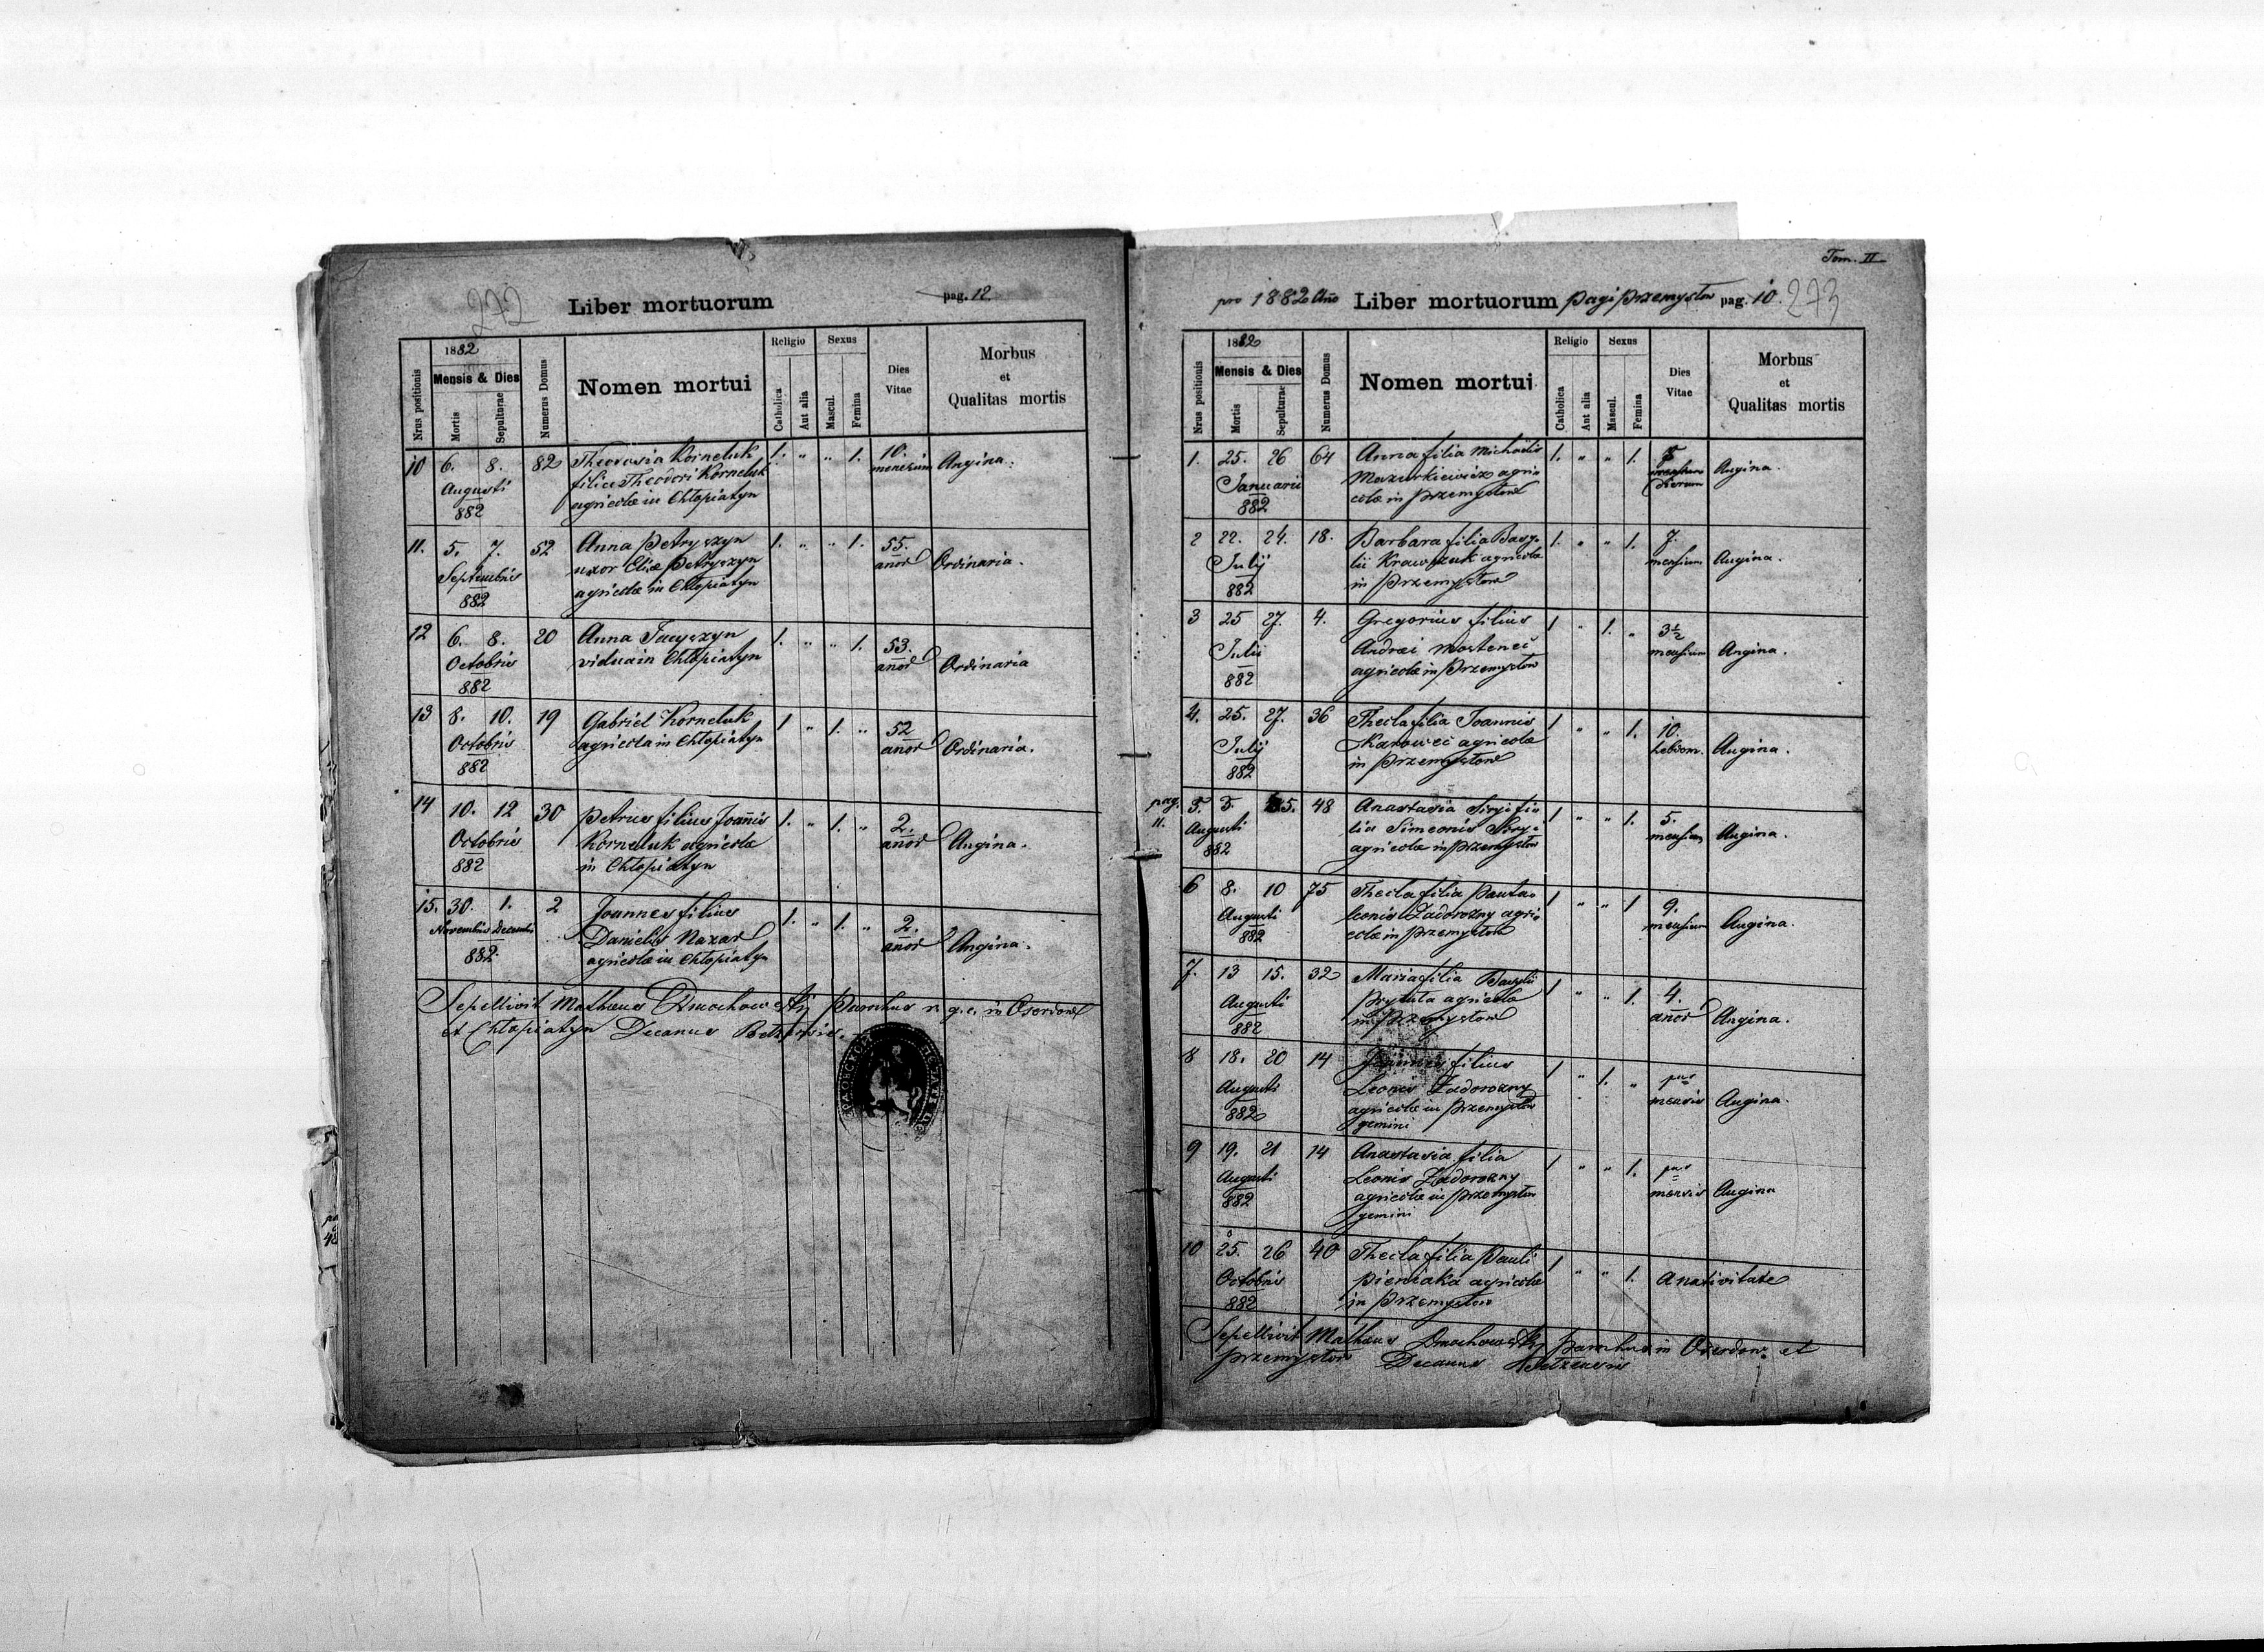 272
Liber mortuorum
pag. 12
Nrus positionis
1882
Mensis & Dies
Mortis
Sepulturae
Numerus Domus
Nomen mortui
Religio
Catholica
Aut alia
Sexus
Mascul.
Femina
Dies
Vitae
Morbus
et
Qualitas mortis
10 6. 8. 82 Theodosia Korneluk 1. " " 1. 10. Angina.
Augusti filia Theodori Korneluk mensium
882 agricolæ in Chłopiatyn
11. 5. 7. 52 Anna Petryszyn 1. " " 1. 55. Ordinaria.
Septembris uxor Eliæ Petryszyn anor
882 agricolæ in Chłopiatyn
12 6. 8. 20 Anna 1. " " 1. 53. Ordinaria
Octobris vidua in Chłopiatyn anor
882
13 8. 10. 19 Gabriel Korneluk 1 " 1. " 52 Ordinaria.
Octobris agricola in Chłopiatyn anor
882
14 10. 12 30 Petrus filius Joannis 1. " 1. " 2. Angina.
Octobris Korneluk agricolæ anor
882 in Chłopiatyn
15. 30. 1. 2 Joannes filius 1. " 1. " 2. Angina.
Novembris Decembris Danielis Nazar anor
882. agricolæ in Chłopiatyn
Sepelivit Mathæus Dmochowskij Parochus r. g. c. in Oserdow
et Chłopiatyn Decanus Bełzensis.
Tom. II
pro 1882 Año Liber mortuorum pagi Przemysłow pag. 10. 273
Nrus positionis
1882
Mensis & Dies
Mortis
Sepulturae
Numerus Domus
Nomen mortui
Religio
Catholica
Aut alia
Sexus
Mascul.
Femina
Dies
Vitae
Morbus
et
Qualitas mortis
1. 25. 26 64 Anna filia Michaëlis 1. " " 1. Angina.
Januarii Mazurkiewicz agri= dierum
882 colæ in Przemysłow
2 22. 24. 18. Barbara filia Basy= 1. " " 1. 7. Angina.
Julij lii Krawczuk agricolæ mensium
882 in Przemysłow
3 25 27. 4. Gregorius filius 1 " 1. " 3½ Angina.
Julii Andræi agricolæ in Przemysłow mensium
882
4. 25. 27. 36 Thecla filia Joannis 1 " " 1. 10. Angina.
Julij agricolæ hebdom.
882 in Przemysłow
pag. 11.
5. 3. 5. 48 Anastasia fi= 1 " " 1. 5. Angina.
Augusti lia Simeonis mensium
882 agricolæ in Przemysłow
6 8. 10 75 Thecla filia Panta= 1 " " 1 9. Angina.
Augusti leonis Zadorozny agri= mensium
882 colæ in Przemysłow
7. 13 15. 32 Maria filia Basylii 1 " " 1. 4. Angina.
Augusti Prytuła agricolæ anor
882 in Przemysłow
8 18. 20 14 Joannes filius 1 " 1. " Angina.
Augusti Leonis Zadorozny mensis
882 agricolæ in Przemysłow
gemini
9 19. 21 14 Anastasia filia 1 " " 1. Angina
Augusti Leonis Zadorozny mensis
882 agricolæ in Przemysłow
gemini
10 25. 26 40 Thecla filia Pauli 1 " " 1. A nativitate
Octobris Pieniaka agricolæ
882 in Przemysłow
Sepelivit Mathæus Dmochowskij Parochus in Oserdow et
Przemysłow Decanus Bełzensis